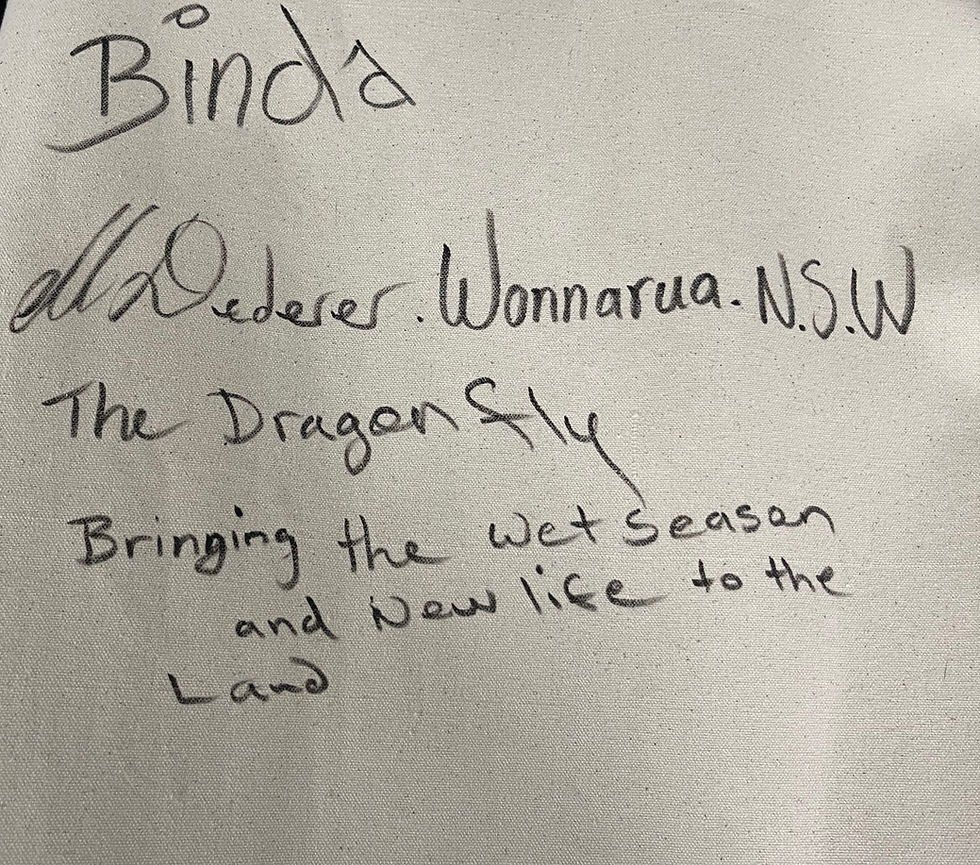 Binda
Dederer. Wonnarua. N.S.W
The Dragonfly
Bringing the wet season
and New life to the
Land